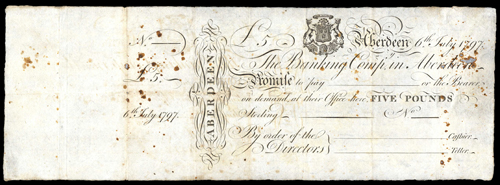 No.
£5
6th. July 1797.
ABERDEEN
£5 Aberdeen 6th. July 1797.
The Banking Compy. in Aberdeen
Promise to pay or the Bearer
on demand, at their Office here, FIVE POUNDS
Sterling No.
By order of the
Directors
Cashier.
Teller.